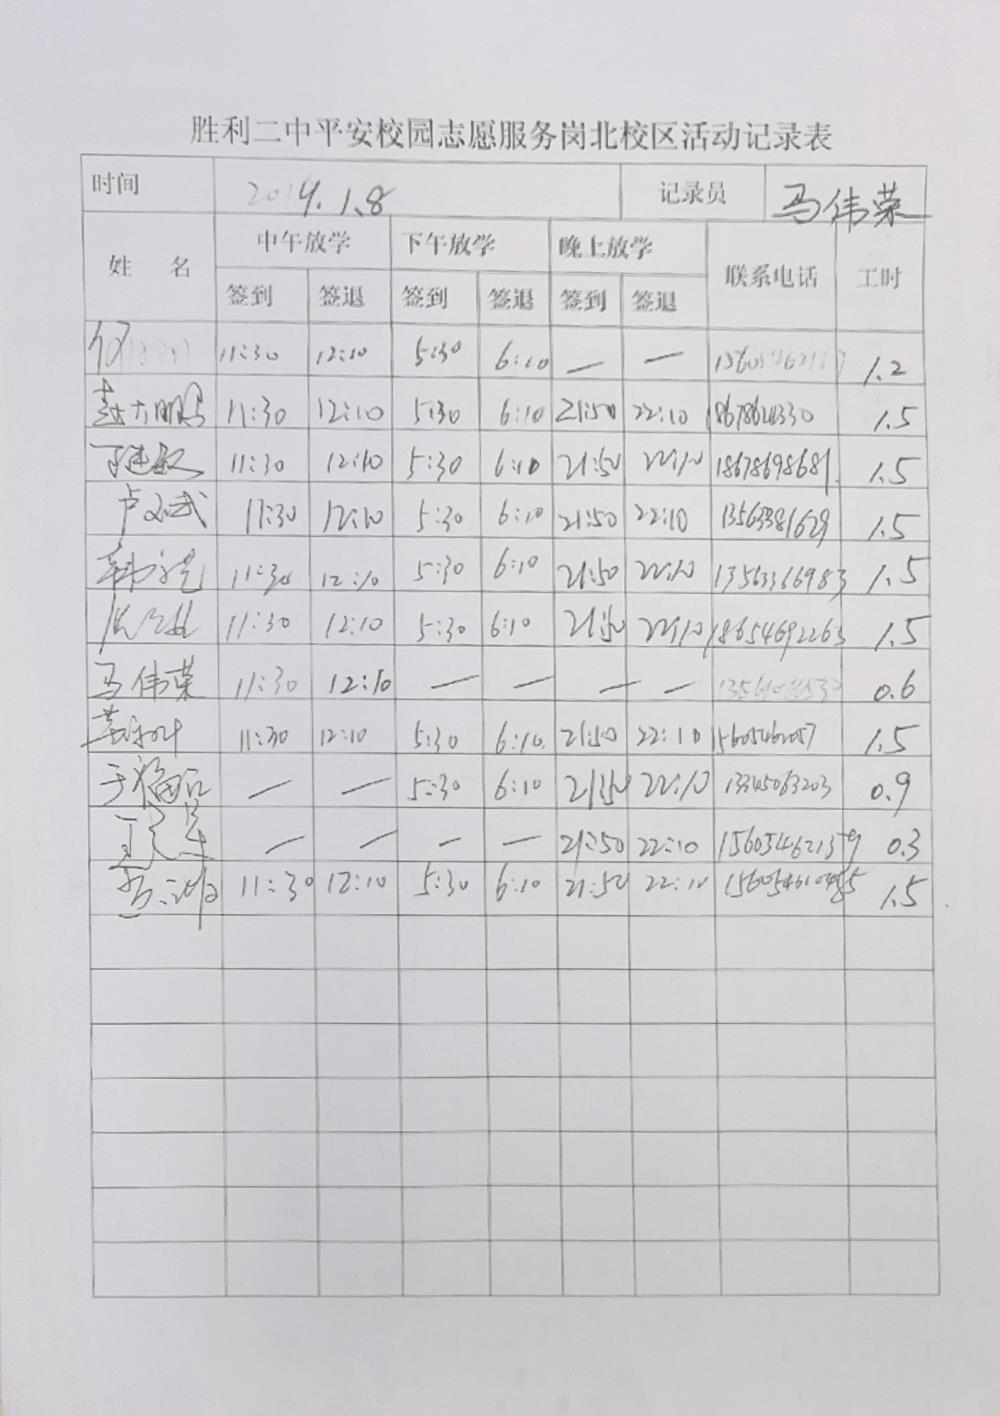 胜利二中平安校园志愿服务岗北校区活动记录表
时间 2019.1.8 记录员 马伟荣
姓 名 中午放学 下午放学 晚上放学 联系电话 工时
签到 签退 签到 签退 签到 签退
11:30 12:10 5:30 6:10 — — 1.2
11:30 12:10 5:30 6:10 21:50 22:10 1.5
11:30 12:10 5:30 6:10 21:50 22:10 18678698681 1.5
11:30 12:10 5:30 6:10 21:50 22:10 13563381629 1.5
11:30 12:10 5:30 6:10 21:50 22:10 13563316983 1.5
11:30 12:10 5:30 6:10 21:50 22:10 18654692263 1.5
马伟荣 11:30 12:10 — — — — 0.6
11:30 12:10 5:30 6:10 21:50 22:10 1.5
— — 5:30 6:10 21:50 22:10 13345063203 0.9
— — — — 21:50 22:10 15605462139 0.3
11:30 12:10 5:30 6:10 21:50 22:10 1.5